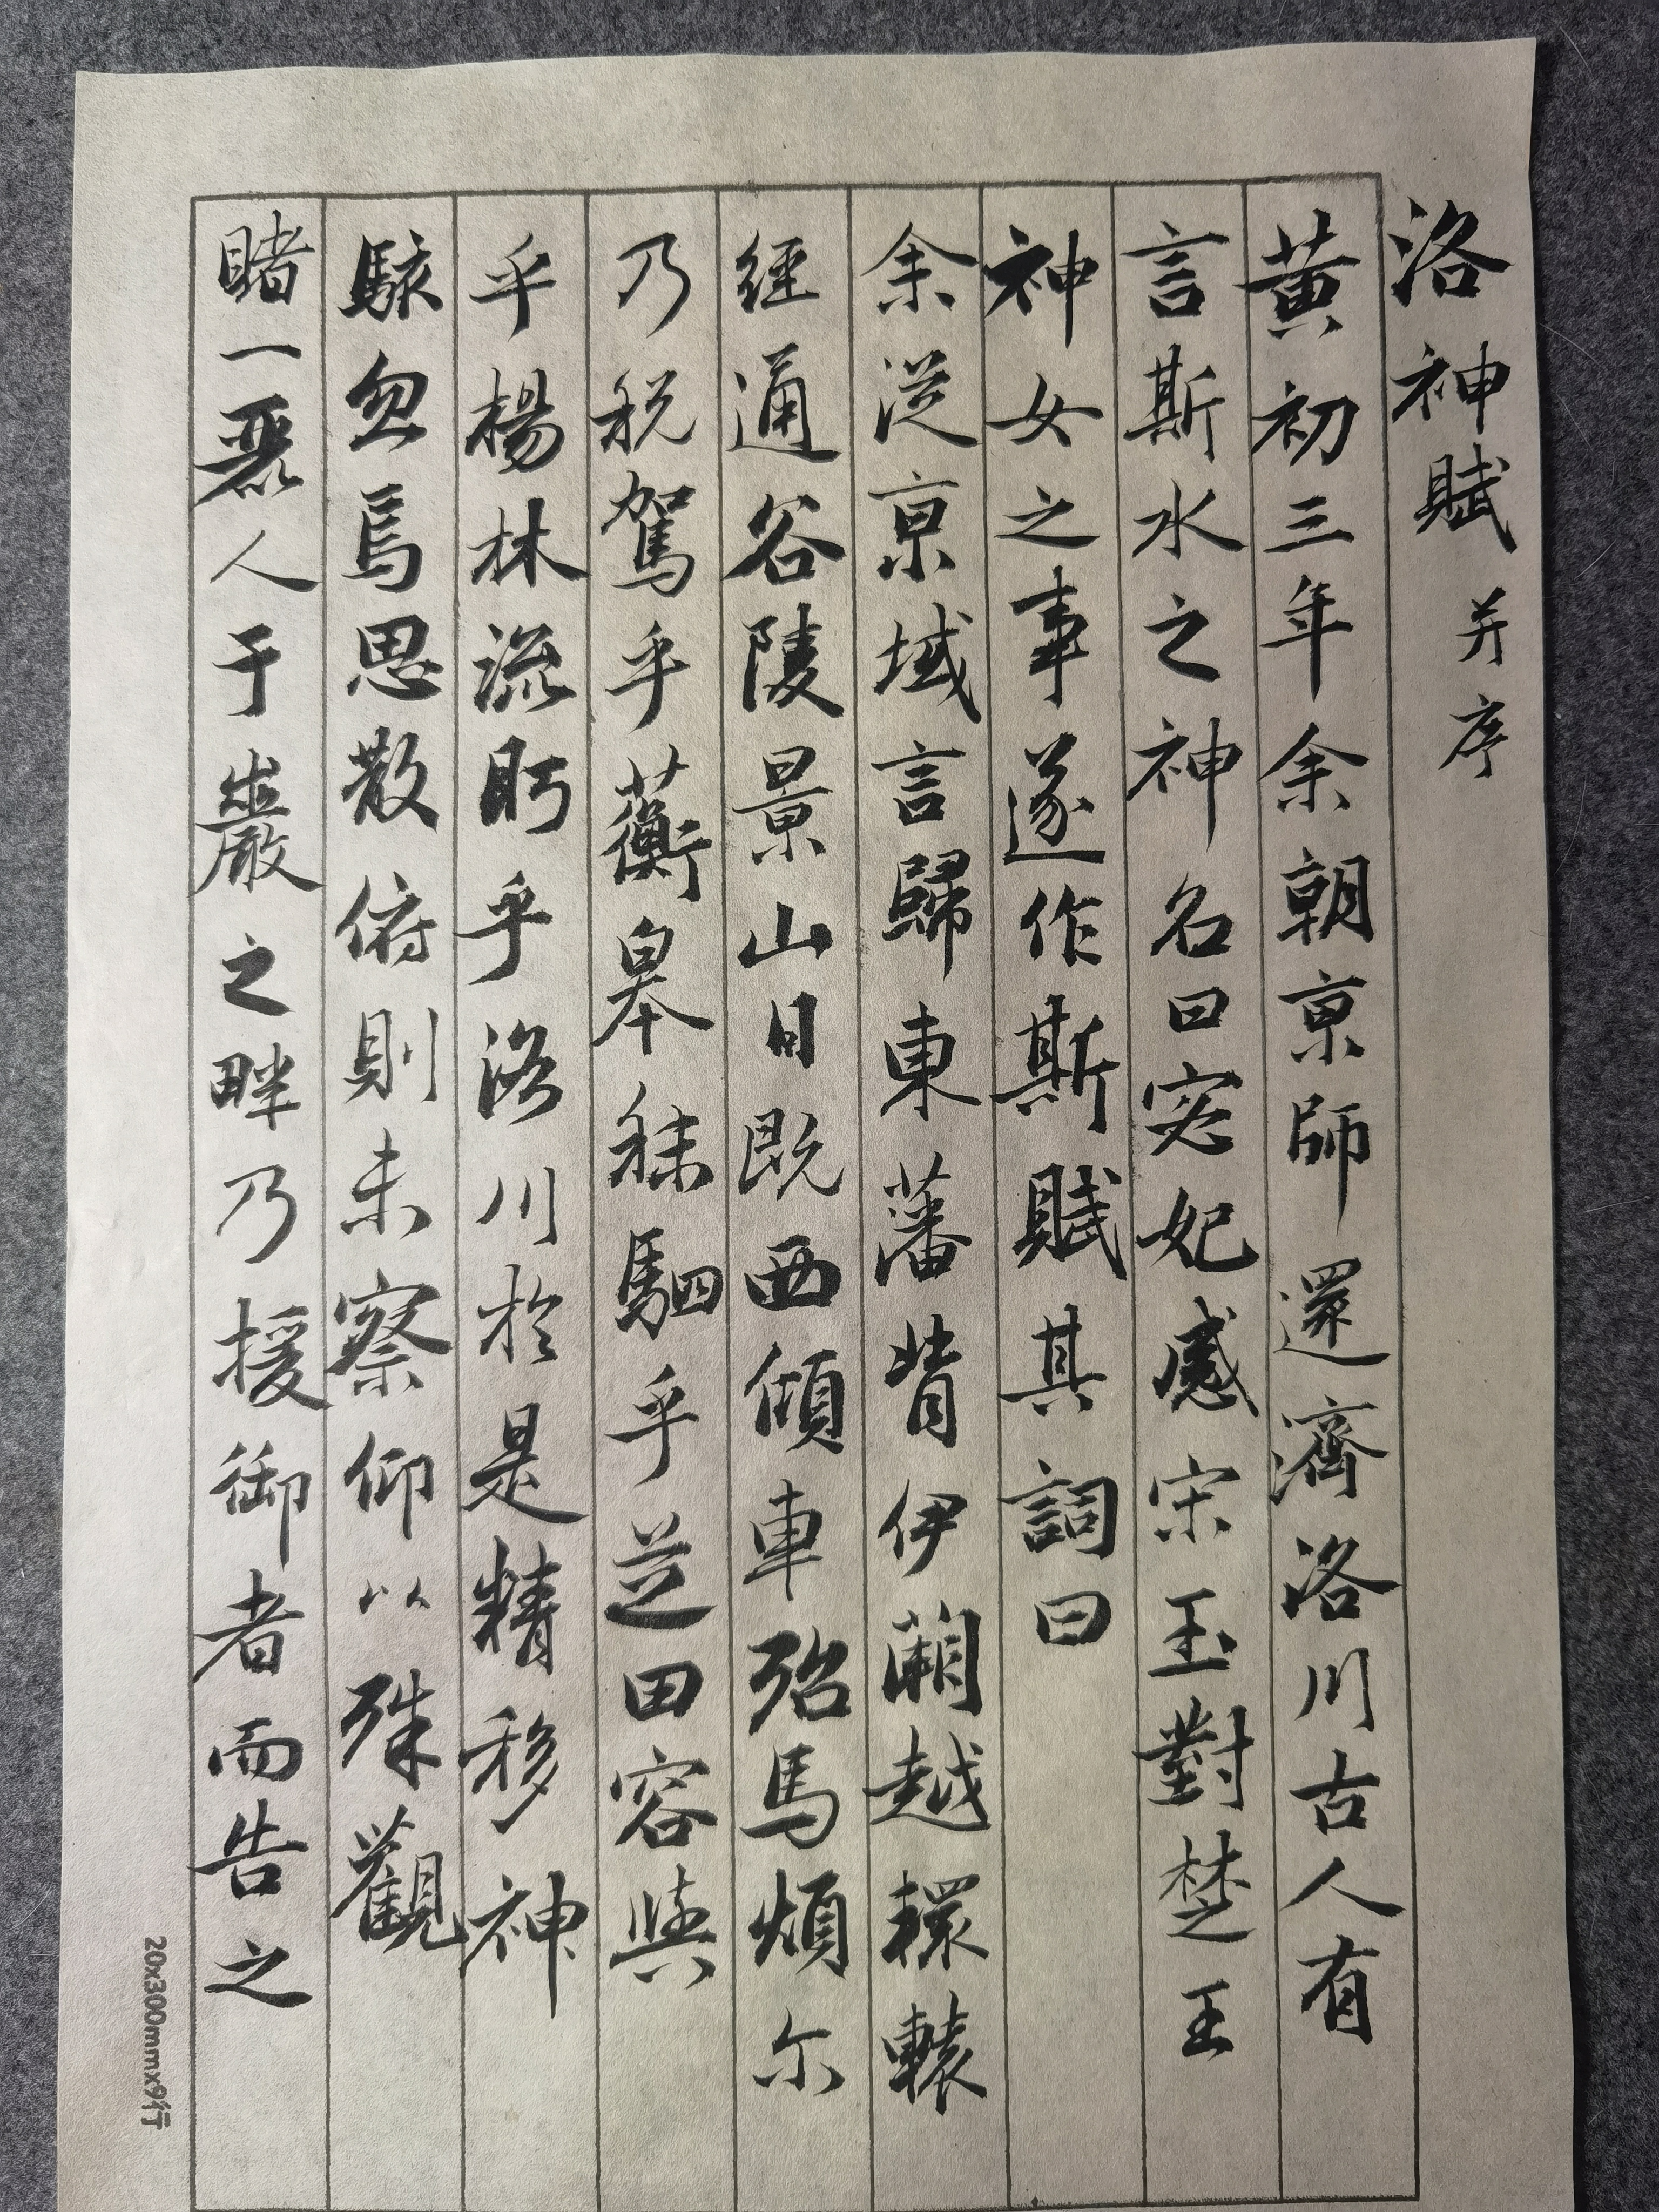 洛神賦 并序
黃初三年余朝京師還濟洛川古人有
言斯水之神名曰宓妃感宋玉對楚王
神女之事遂作斯賦其詞曰
余従京域言歸東藩背伊闕越轘轅
經通谷陵景山日既西傾車殆馬煩尔
乃税駕乎蘅皋秣駟乎芝田容與
乎楊林流眄乎洛川於是精移神
駭忽焉思散俯則未察仰以殊觀
睹一麗人于巖之畔乃援御者而告之
20x300mmx9行